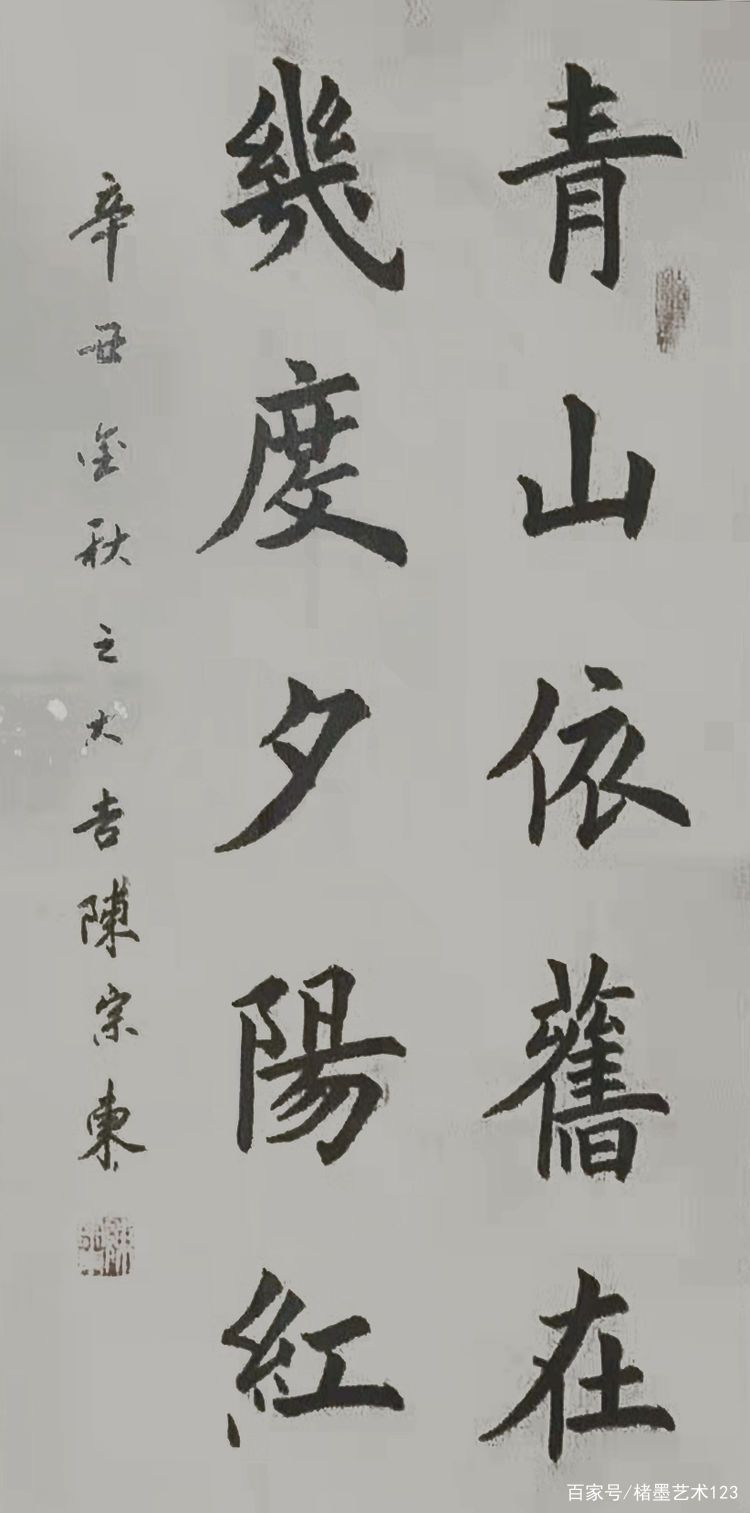 青山依舊在
幾度夕陽紅
辛丑金秋之大吉陳宗東
百家号/楮墨艺术123